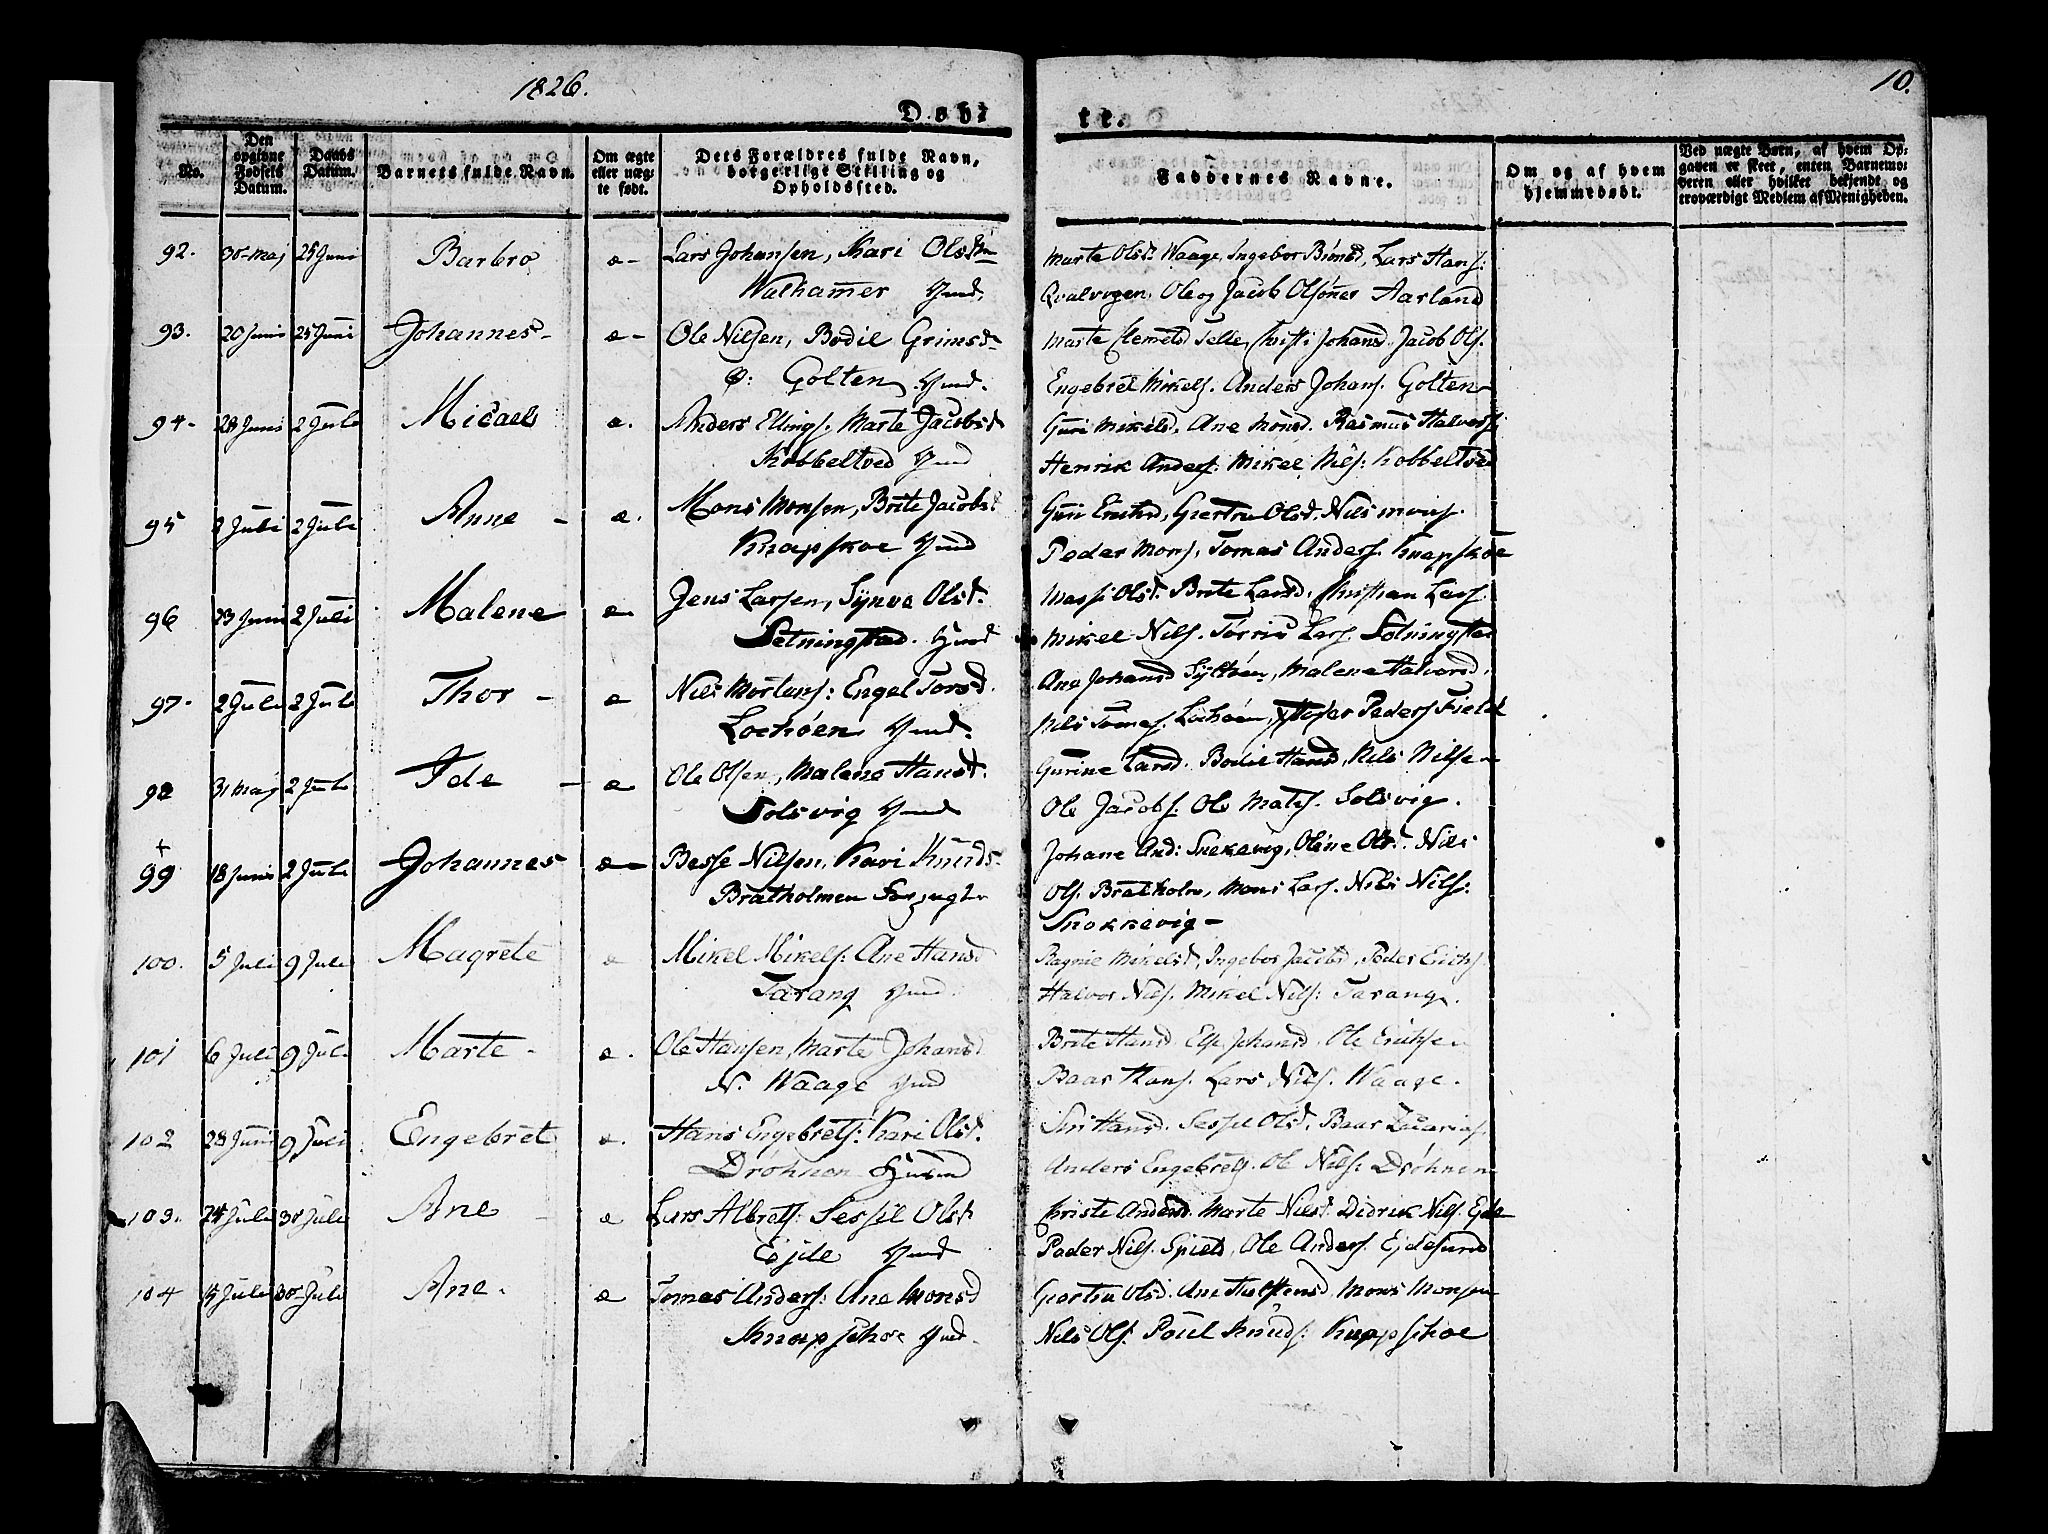 1826.
10.
Døbte.
No.
Den opgivne Fødsels Datum.
Daabs Datum.
Barnets fulde Navn.
Om ægte eller uægte født.
Dets Forældres fulde Navn, borgerlige Stilling og Opholdssted.
Faddernes Navne.
Om og af hvem hjemmedøbt.
Ved uægte Børn, af hvem Opgaven er skeet, enten Barnemoderen eller hvilket bekjendt og troværdigt Medlem af Menigheden.
92. 30 Maj 25 Juni Barbro æ Lars Johansen, Kari Olsdtr Marte Olsd. Waage, Ingebor Bimsd, Lars Hans:
Walhammer Hmd. Qvalvogen, Ole og Jacob Olsønner Aarland
93. 20 Juni 25 Juni Johannes æ Ole Nilsen, Bodil Grimsd Marte Clemetsd Telle, Christi Johansd. Jacob Ols.
Ø: Golten Hmd. Engebret Mikels. Anders Johans. Golten
94. 28 Juni 2 Juli Micael æ. Anders Ellings. Marte Jacobsd Guri Mikelsd, Ane Monsd. Rasmus Halvors:
Kobbeltved Hmd Henrik Anders. Mikel Nils: Kobbeltved
95 2 Juli 2 Juli Anne æ. Mons Monsen, Brite Jacobsd Guri Ericksd, Giertru Olsd. Nils Mons.
Knapskoe Hmd Peder Mons, Tomas Anders. Knapskoe
96 23 Juni 2 Juli Malene æ Jens Larsen, Synve Olsd. Massi Olsd. Brite Larsd, Christian Lars.
Setningstad. Hmd Mikel Nils. Torris Lars. Solningstad
97. 2 Juli 2 Juli Thor æ Nils Mortens: Engel Torsd. Ane Johansd Syltøen, Malene Halvorsd,
Lochøen Hmd. Nils Tomes. Lochøen, Peders Field
98 31 Maj 2 Juli Ide æ Ole Olsen, Malene Hansd. Gurine Larsd. Bodil Hansd, Nils Nilsen
Solsvig Hmd Ole Jacobs. Ole Mats. Solsvig.
99 18 Juni 2 Juli Johannes æ Besse Nilsen, Kari Knuds. Johane And: Snekevig, Oline Olsd. Nils
Bratholmen Ols. Bratholm, Mons Lars. Nils Nils:
Snokkevig
100. 5 Juli 9 Juli Magrete æ Mikel Mikels: Ane Hansd Ragnie Mikelsd, Ingebor Jacobsd, Peder Erichs.
Tarang Hmd. Halvor Nils. Mikel Nils: Tarang.
101 6 Juli 9 Juli Marte æ. Ole Hansen, Marte Johansd Brite Hansd. Else Johansd. Ole Erichsen
N. Waage Hmd Baar Hans. Lars Nils. Waage.
102 28 Juni 9 Juli Engebret æ. Hans Engebrets: Kari Olsd. Siri Hansd. Sessel Olsd. Baar Zacarias.
Drøhnen Husmd Anders Engebrets. Ole Nils: Drøhnen
103. 24 Juli 30 Juli Ane æ Lars Albrets: Sessil Olsd. Christe Andersd. Marte Nilsd. Didrik Nils. Ejde
Ejde Hmd Peder Nils. Spield, Ole Anders. Ejdesund
104 15 Juli 30 Juli Ane. æ Tomas Anders: Ane Monsd Giertru Olsd. Ane Torstensd, Mons Monsen
Knapschoe Hmd. Nils Ols. Poul Knuds: Knapschoe